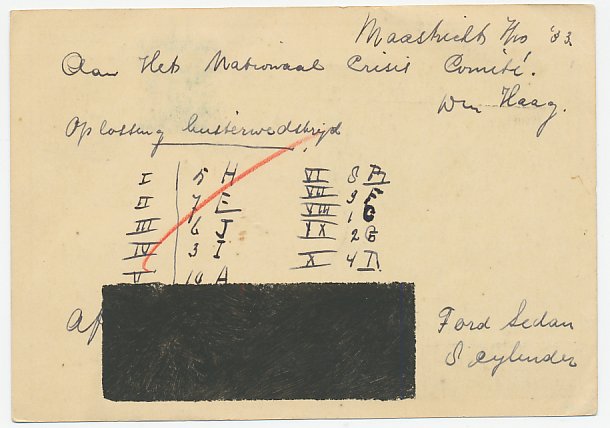 Maastricht 7/10 '33.
Aan Het Nationaal Crisis Comité.
Den Haag.
Oplossing luisterwedstrijd
I 5 H VI 8 B
II 7 E VII 9 F
III 6 J VIII 1 C
IV 3 I IX 2 G
V 10 A X 4 D
Af
Ford Sedan
8 cylinder